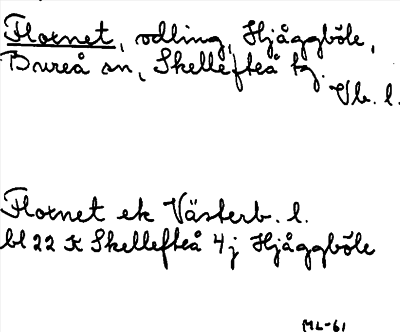 Floxnet, odling, Hjåggböle,
Bureå sn, Skellefteå tg.
Vb. l.
Floxnet ek Västerb. l.
bl 22 K Skellefteå 4j Hjåggböle
ML-61